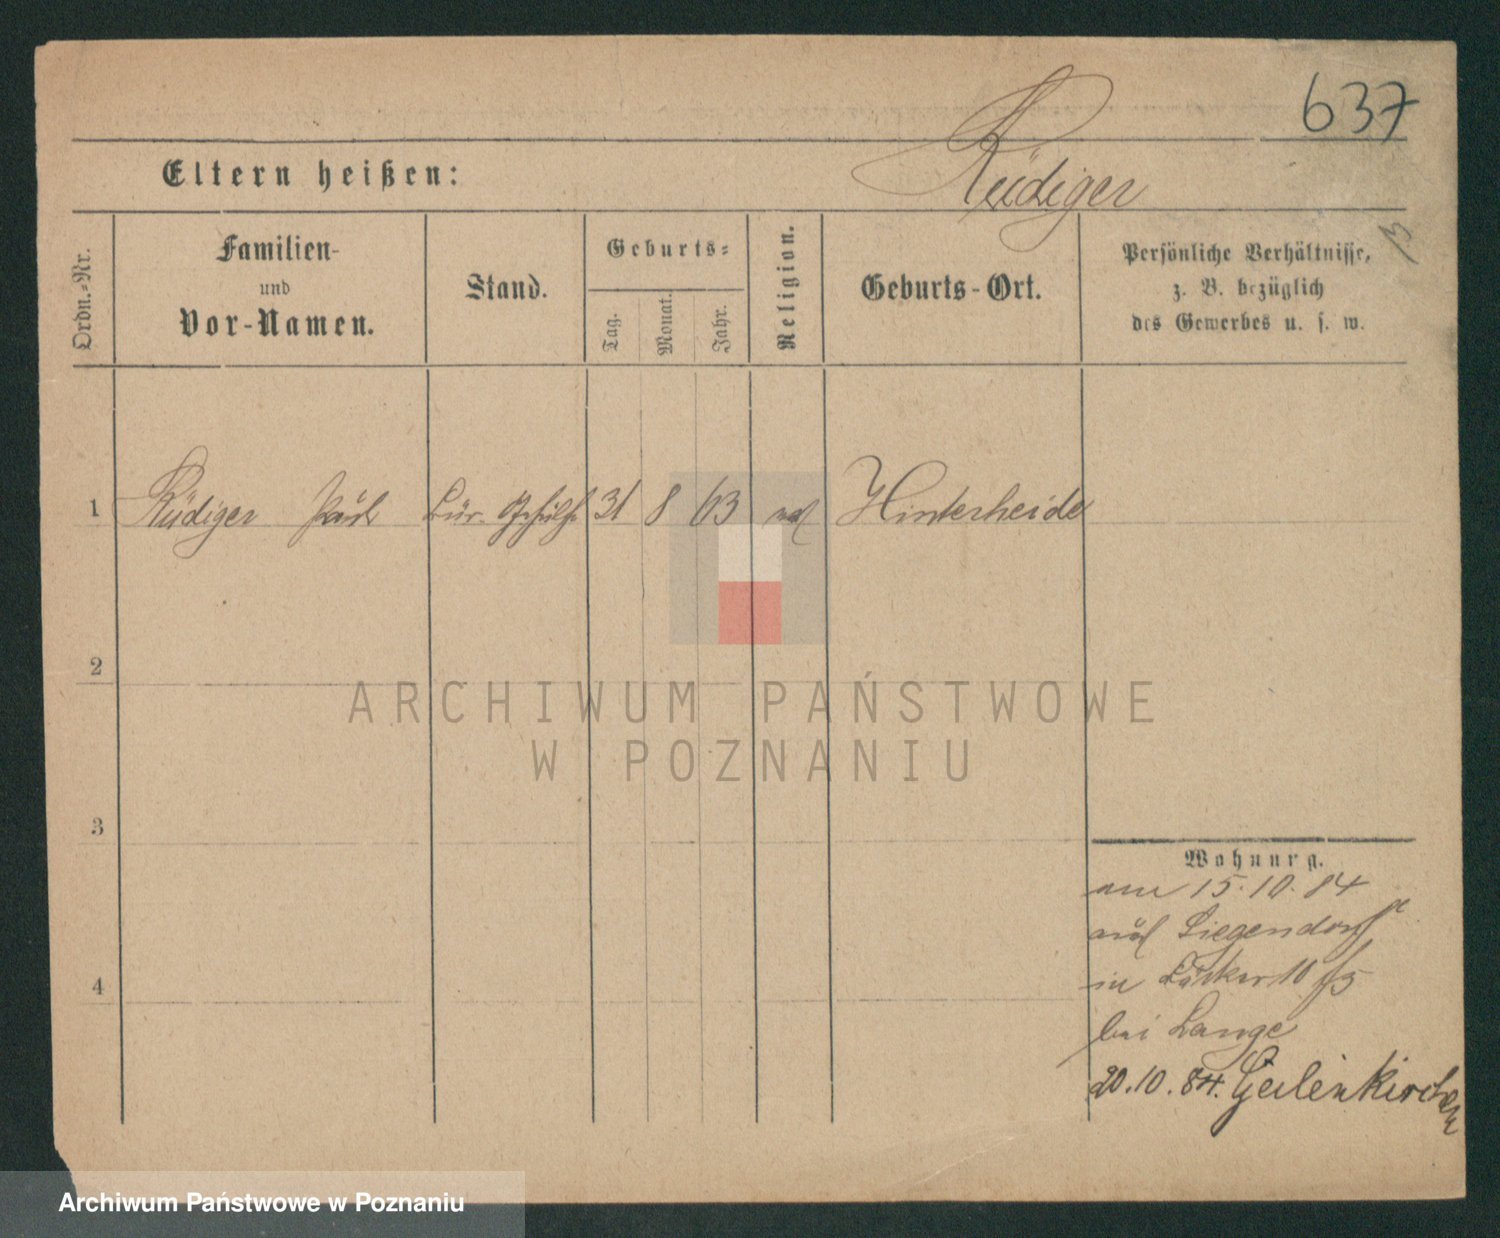 637
Eltern heißen:
Rüdiger
Ordn.-Nr.
Familien-
und
Vor-Namen.
Stand.
Geburts-
Tag.
Monat.
Jahr.
Religion.
Geburts-Ort.
Persönliche Verhältnisse,
z. B. bezüglich
des Gewerbes u. s. w.
1 Rüdiger Paul Bür. Gehülfe 31 8 63 Hinterheide
2
ARCHIWUM PAŃSTWOWE
W POZNANIU
3
Wohnung.
am 15.10.84
aus Liegendorf
in 10
bei Lange
4
20.10.84. Geilenkirchen
Archiwum Państwowe w Poznaniu